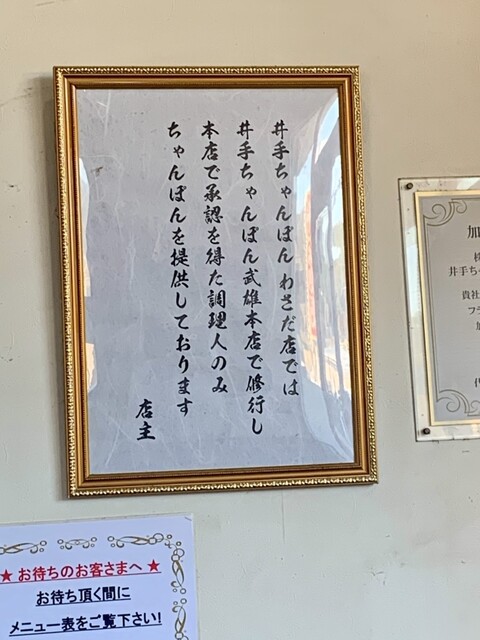 井手ちゃんぽん わさだ店では
井手ちゃんぽん武雄本店で修行し
本店で承認を得た調理人のみ
ちゃんぽんを提供しております
店主
加
井手ち
貴社
フラ
★ お待ちのお客さまへ ★
お待ち頂く間に
メニュー表をご覧下さい!